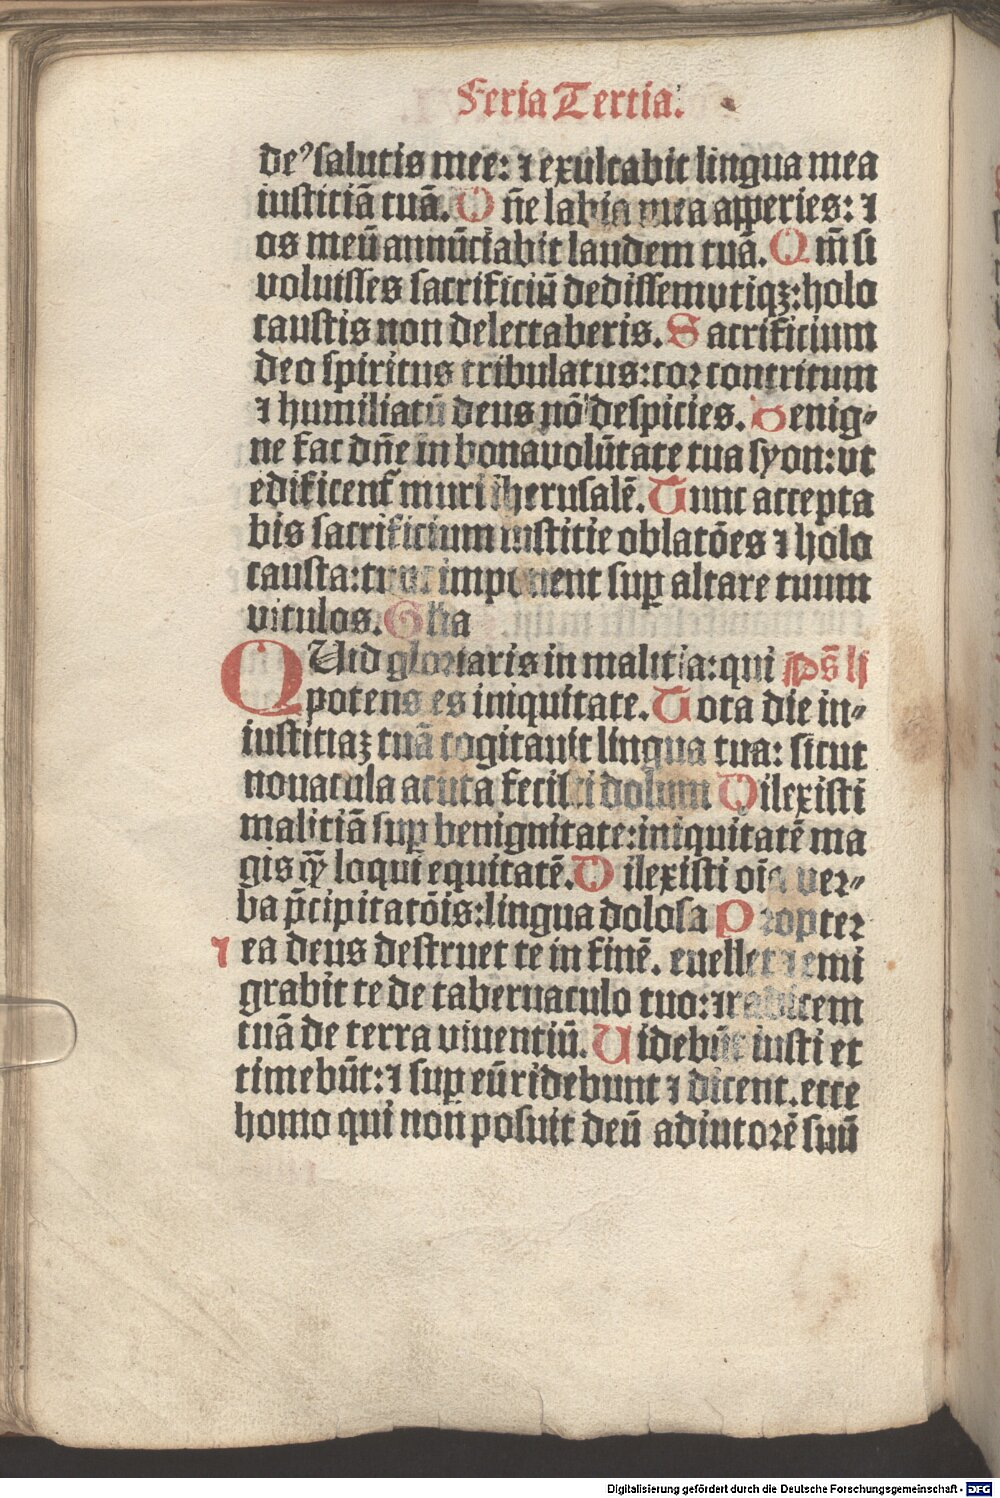 Feria Tertia.
deꝰ salutis mee: ⁊ exultabit lingua mea
iusticiā tuā. Dñe labia mea aꝑperies: ⁊
os meū annūciabit laudem tuā. Qm̄ si
voluisses sacrificiū dedissem vtiqꝫ: holo
caustis non delectaberis. Sacrificium
deo spiritus tribulatus: cor contritum
⁊ humiliatū deus nō despicies. Benig⸗
ne fac dn̄e in bona volūtate tua syon: vt
edificent᷑ muri iherusalē. Tunc accepta
bis sacrificium iustitie oblatōes ⁊ holo
causta: tunc imponent suꝑ altare tuum
vitulos. Glia
QUid gloriaris in malitia: qui Ps̄ lj
potens es iniquitate. Tota die in⸗
iustitiaꝫ tuā cogitauit lingua tua: sicut
nouacula acuta fecisti dolum Dilexisti
malitiā suꝑ benignitate: iniquitatē ma
gis qȝ̄ loqui equitatē. Dilexisti oīa ver⸗
ba p̄cipitatōis: lingua dolosa Propter
⁊ ea deus destruet te in finē. euellet ⁊ emi
grabit te de tabernaculo tuo: ⁊ radicem
tuā de terra viuentiū. Uidebūt iusti et
timebūt: ⁊ suꝑ eū ridebunt ⁊ dicent. ecce
homo qui non posuit deū adiutorē suū
Digitalisierung gefördert durch die Deutsche Forschungsgemeinschaft - DFG